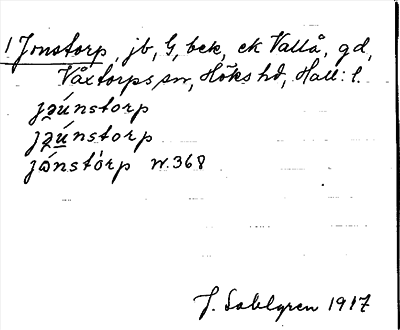 1 Jonstorp, jb, G, bek, ek Vallå, gd,
Våxtorps sn, Höks hd, Hall: l.
jǝúnstorp
jǝúnstorp
jónstórp w. 368
J. Sahlgren 1917